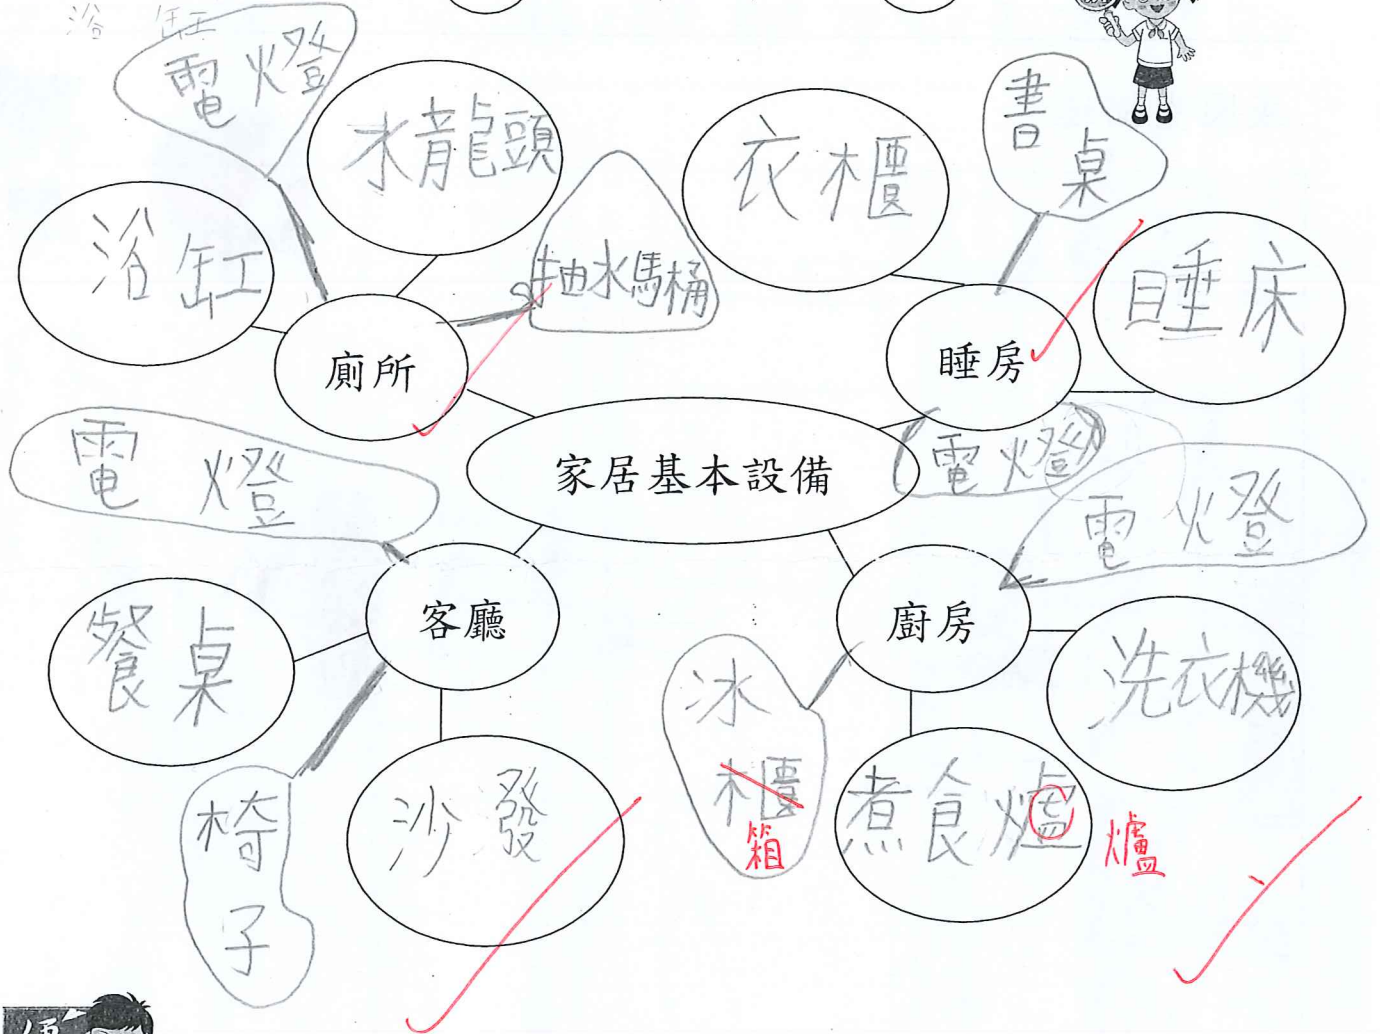 浴 缸
電燈
水龍頭
衣櫃
書桌
浴缸
抽水馬桶
睡床
廁所
睡房
電燈
家居基本設備
電燈
電燈
餐桌
客廳
廚房
洗衣機
冰
櫃
箱
椅
子
沙發
煮食爐
爐
便